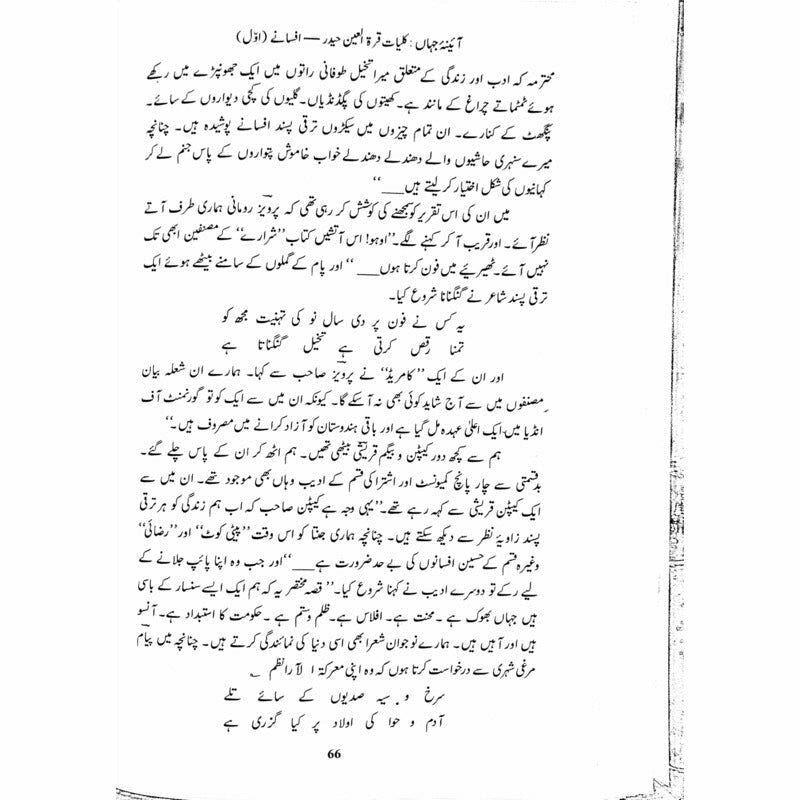 آئینۂ جہاں : کلیات قرۃ العین حیدر — افسانے (اوّل)
محترمہ کہ ادب اور زندگی کے متعلق میرا تخیل طوفانی راتوں میں ایک جھونپڑے میں رکھے
ہوئے ٹمٹماتے چراغ کے مانند ہے۔ کھیتوں کی پگڈنڈیاں۔ گلیوں کی کچی دیواروں کے سائے۔
پنگھٹ کے کنارے۔ ان تمام چیزوں میں سیکڑوں ترقی پسند افسانے پوشیدہ ہیں۔ چنانچہ
میرے سنہری حاشیوں والے دھندلے دھندلے خواب خاموش پتواروں کے پاس جنم لے کر
کہانیوں کی شکل اختیار کر لیتے ہیں___‘‘
میں ان کی اس تقریر کو سمجھنے کی کوشش کر رہی تھی کہ پرویز رومانی ہماری طرف آتے
نظر آئے۔ اور قریب آ کر کہنے لگے۔’’اوہو! اس آتشیں کتاب ’’شرارے‘‘ کے مصنفین ابھی تک
نہیں آئے۔ ٹھیریئے میں فون کرتا ہوں___‘‘ اور پام کے گملوں کے سامنے بیٹھے ہوئے ایک
ترقی پسند شاعر نے گنگنانا شروع کیا۔
یہ کس نے فون پر دی سال نو کی تہنیت مجھ کو
تمنا رقص کرتی ہے تخیل گنگناتا ہے
اور ان کے ایک ’’کامریڈ‘‘ نے پرویز صاحب سے کہا۔ ہمارے ان شعلہ بیان
مصنفوں میں سے آج شاید کوئی بھی نہ آ سکے گا۔ کیونکہ ان میں سے ایک کو تو گورنمنٹ آف
انڈیا میں ایک اعلیٰ عہدہ مل گیا ہے اور باقی ہندوستان کو آزاد کرانے میں مصروف ہیں۔‘‘
ہم سے کچھ دور کیپٹن و بیگم قریشی بیٹھی تھیں۔ ہم اٹھ کر ان کے پاس چلے گئے۔
بدقسمتی سے چار پانچ کمیونسٹ اور اشتراکی قسم کے ادیب وہاں بھی موجود تھے۔ ان میں سے
ایک کیپٹن قریشی سے کہہ رہے تھے۔’’یہی وجہ ہے کیپٹن صاحب کہ اب ہم زندگی کو ہر ترقی
پسند زاویۂ نظر سے دیکھ سکتے ہیں۔ چنانچہ ہماری جنتا کو اس وقت ’’پیٹی کوٹ‘‘ اور ’’رضائی‘‘
وغیرہ قسم کے حسین افسانوں کی بے حد ضرورت ہے___‘‘ اور جب وہ اپنا پائپ جلانے کے
لیے رکے تو دوسرے ادیب نے کہنا شروع کیا۔’’ قصہ مختصر یہ کہ ہم ایک ایسے سنسار کے باسی
ہیں جہاں بھوک ہے۔ محنت ہے۔ افلاس ہے۔ ظلم و ستم ہے۔ حکومت کا استبداد ہے۔ آنسو
ہیں اور آہیں ہیں۔ ہمارے نوجوان شعرا بھی اسی دنیا کی نمائندگی کرتے ہیں۔ چنانچہ میں پیام
مرغی شہری سے درخواست کرتا ہوں کہ وہ اپنی معرکۃ الآرا نظم ؎
سرخ و سیہ صدیوں کے سائے تلے
آدم و حوا کی اولاد پر کیا گزری ہے
66